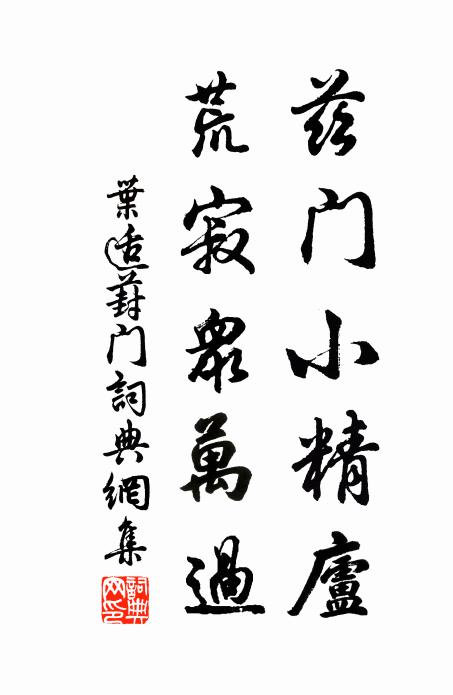 葑门小精廬
荒寂衆萬過
葉適葑门詞典網集
詞典
网印